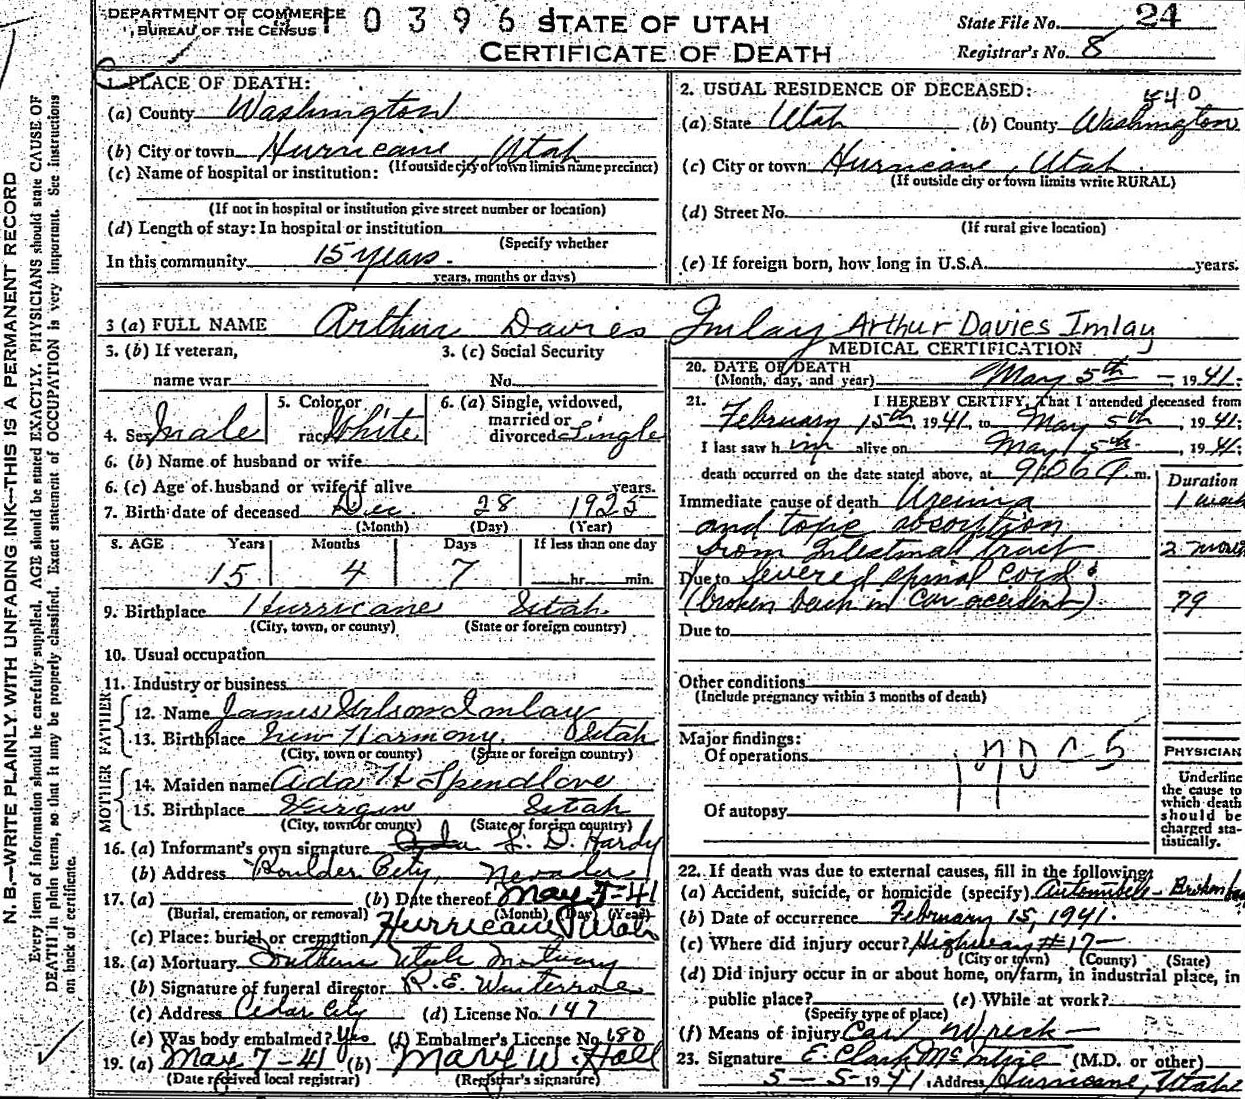 DEPARTMENT OF COMMERCE
BUREAU OF THE CENSUS
10396
STATE OF UTAH
CERTIFICATE OF DEATH
State File No. 24
Registrar's No. 8
N. B.—WRITE PLAINLY, WITH UNFADING INK—THIS IS A PERMANENT RECORD
Every item of Information should be carefully supplied. AGE should be stated EXACTLY. PHYSICIANS should state CAUSE OF
DEATH in plain terms, so that it may be properly classified. Exact statement of OCCUPATION is very important. See instructions
on back of certificate.
1. PLACE OF DEATH:
(a) County Washington
(b) City or town Hurricane, Utah
(If outside city or town limits name precinct)
(c) Name of hospital or institution:
(If not in hospital or institution give street number or location)
(d) Length of stay: In hospital or institution
(Specify whether
In this community 15 years.
years, months or days)
2. USUAL RESIDENCE OF DECEASED:
540
(a) State Utah (b) County Washington
(c) City or town Hurricane, Utah
(If outside city or town limits write RURAL)
(d) Street No.
(If rural give location)
(e) If foreign born, how long in U.S.A. years.
3 (a) FULL NAME Arthur Davies Imlay Arthur Davies Imlay
3. (b) If veteran,
name war
3. (c) Social Security
No.
4. Sex Male
5. Color or
race White
6. (a) Single, widowed,
married or
divorced Single
6. (b) Name of husband or wife
6. (c) Age of husband or wife if alive years.
7. Birth date of deceased Dec 28 1925
(Month) (Day) (Year)
8. AGE Years Months Days If less than one day
15 4 7 hr. min.
9. Birthplace Hurricane Utah
(City, town, or county) (State or foreign country)
10. Usual occupation
11. Industry or business
FATHER
12. Name James Wilson Imlay
13. Birthplace New Harmony, Utah
(City, town or county) (State or foreign country)
MOTHER
14. Maiden name Ada H Spendlove
15. Birthplace Virgin Utah
(City, town or county) (State or foreign country)
16. (a) Informant's own signature L. D. Hardy
(b) Address Boulder City, Nevada
17. (a) (b) Date thereof May 7-41
(Burial, cremation, or removal) (Month) (Day) (Year)
(c) Place: burial or cremation Hurricane Utah
18. (a) Mortuary Southern Utah Mortuary
(b) Signature of funeral director R. E.
(c) Address Cedar City (d) License No. 147
(e) Was body embalmed? Yes (f) Embalmer's License No. 180
19. (a) May 7-41 (b) Mary W. Hall
(Date received local registrar) (Registrar's signature)
MEDICAL CERTIFICATION
20. DATE OF DEATH
(Month, day, and year) May 5th, 1941.
21. I HEREBY CERTIFY, That I attended deceased from
February 15th, 1941, to May 5th, 1941;
I last saw him alive on May 5th, 1941;
death occurred on the date stated above, at 9:06 m.
Duration
Immediate cause of death Uremia 1 week
and toxic absorption
from Intestinal tract 2 months
Due to Severed spinal cord &
(broken back in car accident) 79
Due to
Other conditions
(Include pregnancy within 3 months of death)
Major findings:
Of operations
Of autopsy
PHYSICIAN
Underline
the cause to
which death
should be
charged sta-
tistically.
22. If death was due to external causes, fill in the following:
(a) Accident, suicide, or homicide (specify) Broken
(b) Date of occurrence February 15, 1941.
(c) Where did injury occur? Highway # 17
(City or town) (County) (State)
(d) Did injury occur in or about home, on farm, in industrial place, in
public place? (e) While at work?
(Specify type of place)
(f) Means of injury Car Wreck
23. Signature E. Clark McIntire (M.D. or other)
5-5-1941. Address Hurricane, Utah